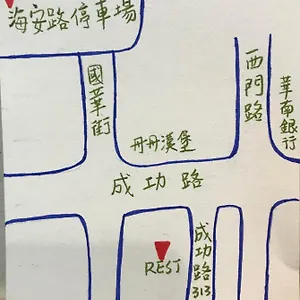 海安路停車場
國華街
西門路
華南銀行
丹丹漢堡
成功路
REST
成功路313